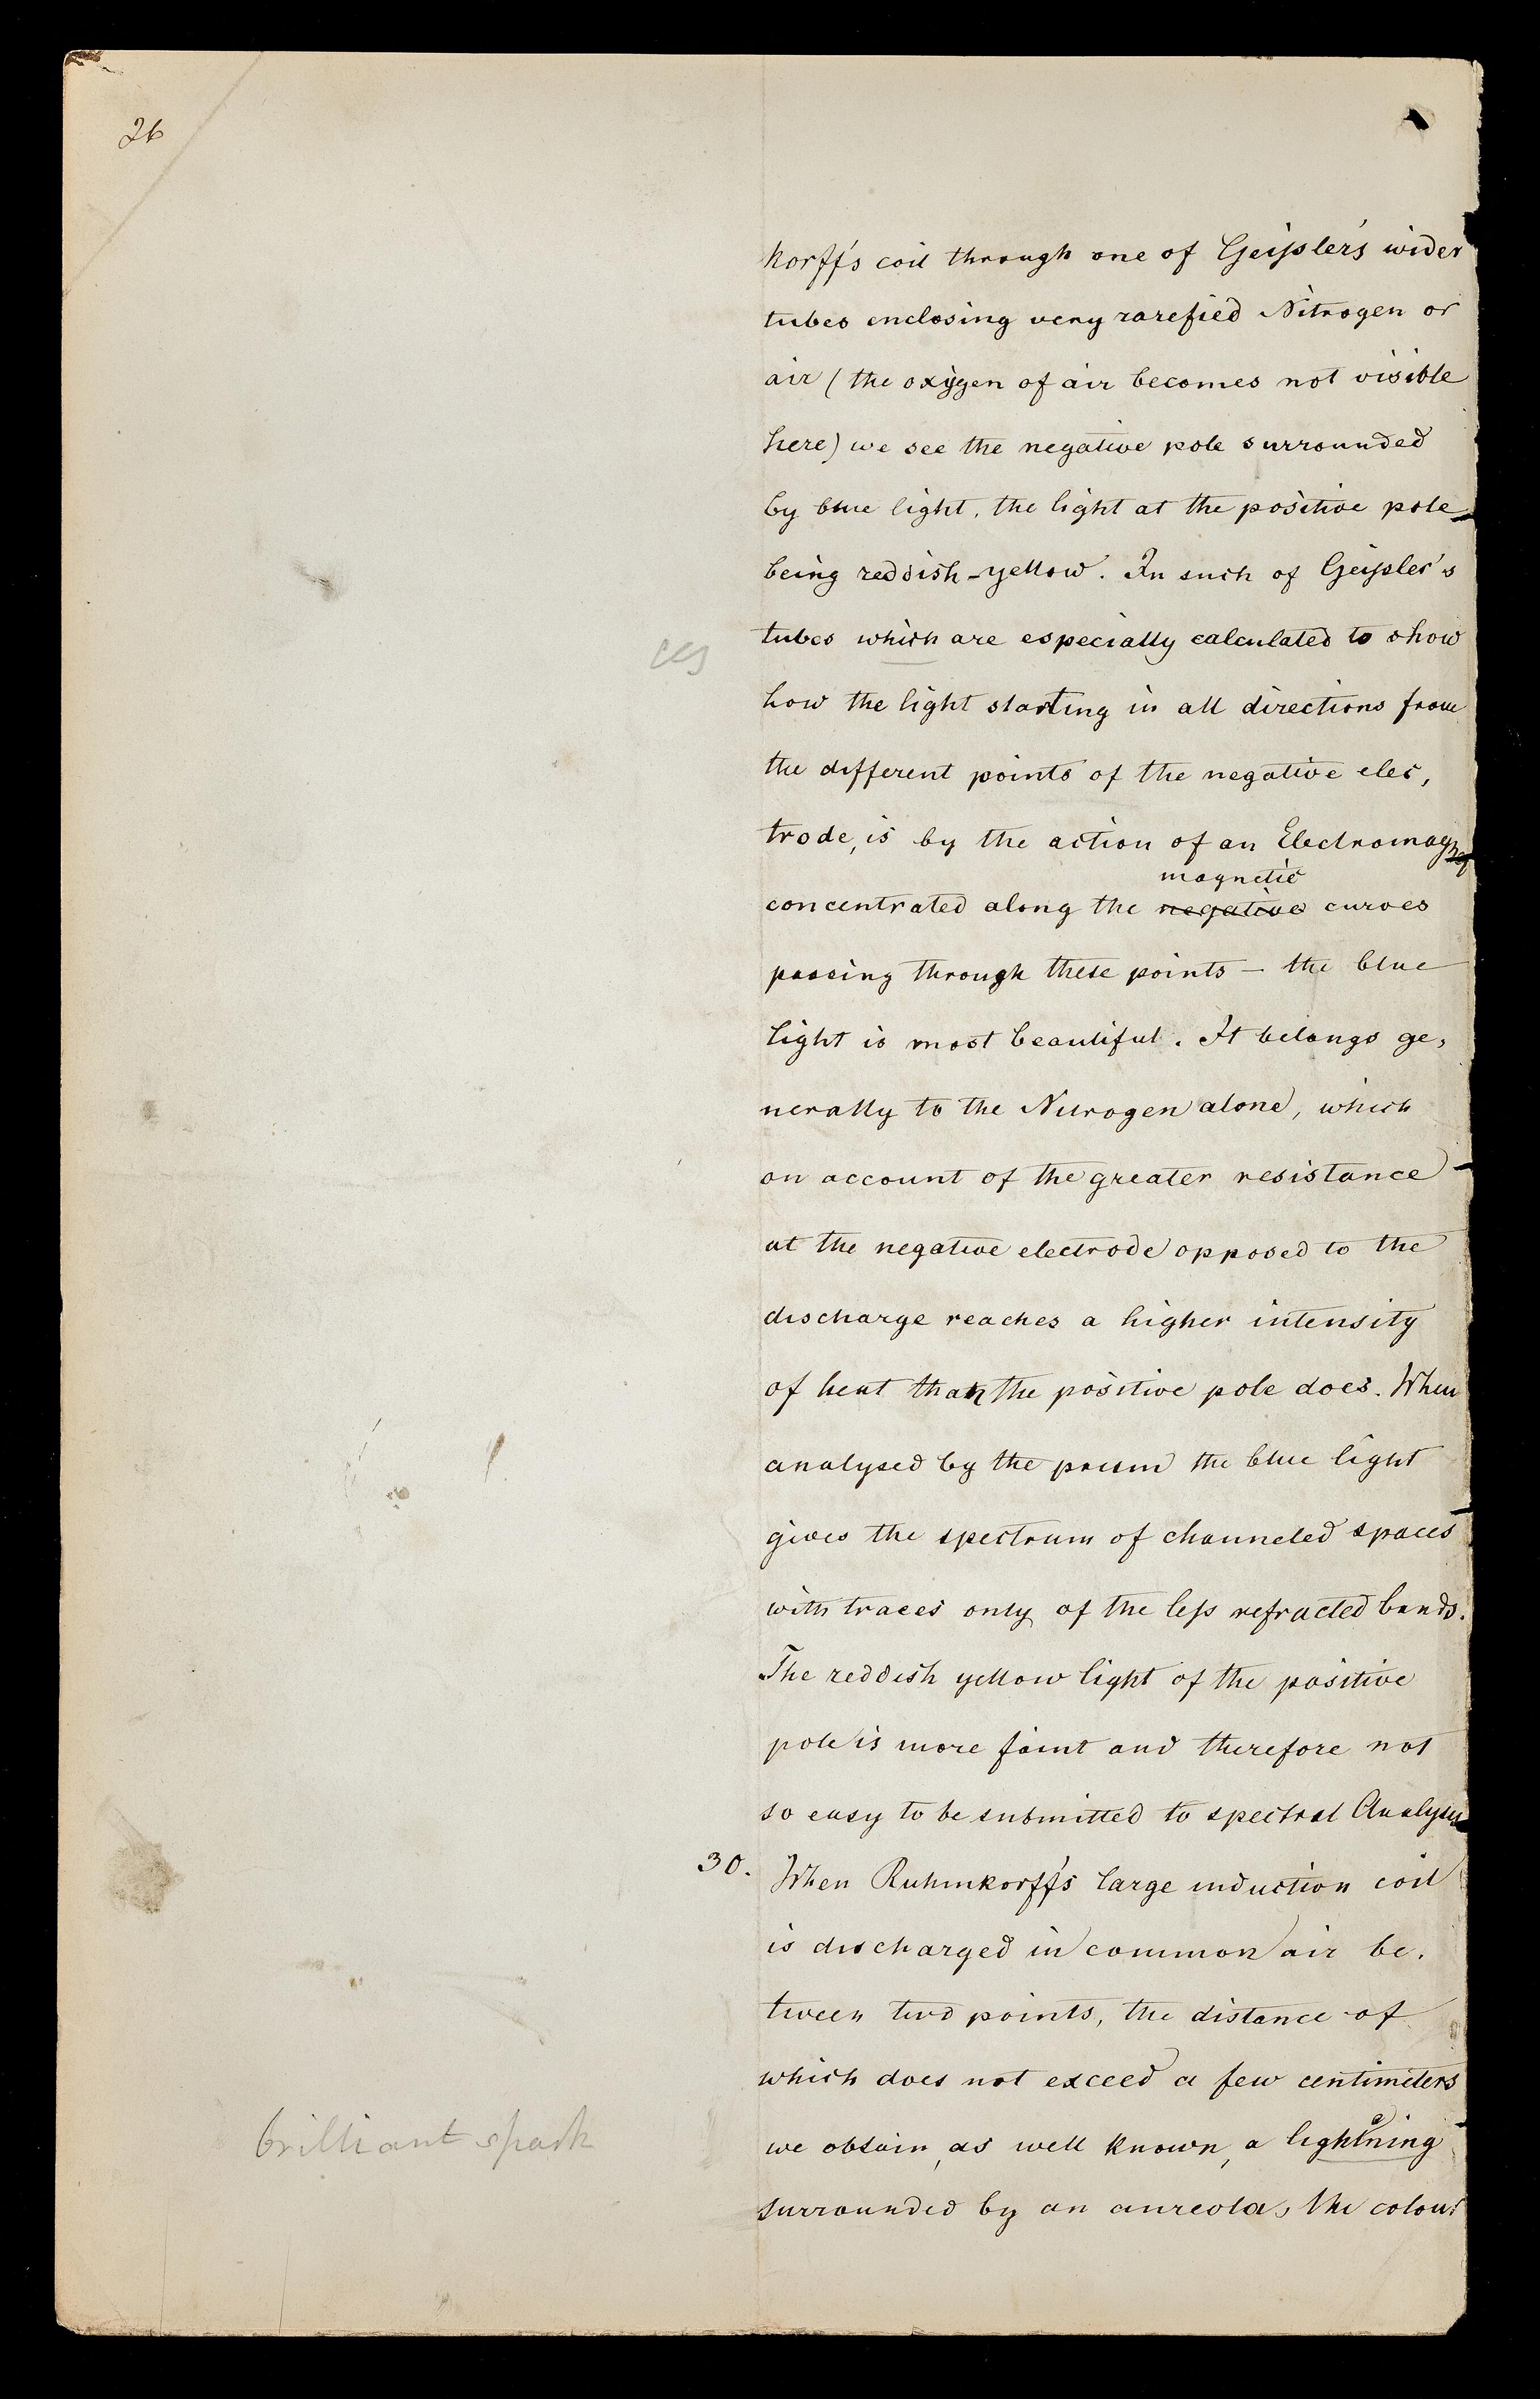 26
korff's coil through one of Geissler's wider
tubes enclosing very rarefied Nitrogen or
air (the oxygen of air becomes not visible
here) we see the negative pole surrounded
by blue light, the light at the positive pole
being reddish-yellow. In such of Geissler's
tubes which are especially calculated to show
how the light starting in all directions from
the different points of the negative elec,
trode, is by the action of an Electromagnet
magnetic
concentrated along the negative curves
passing through these points — the blue
light is most beautiful. It belongs ge,
nerally to the Nitrogen alone, which
on account of the greater resistance
at the negative electrode opposed to the
discharge reaches a higher intensity
of heat than the positive pole does. When
analysed by the prism the blue light
gives the spectrum of channeled spaces
with traces only of the less refracted bands.
The reddish yellow light of the positive
pole is more faint and therefore not
so easy to be submitted to spectral Analysis
30. When Ruhmkorff's large induction coil
is discharged in common air be.
tween two points, the distance of
which does not exceed a few centimeters
we obtain, as well known, a lightning
brilliant spark
surrounded by an aureola, the colour